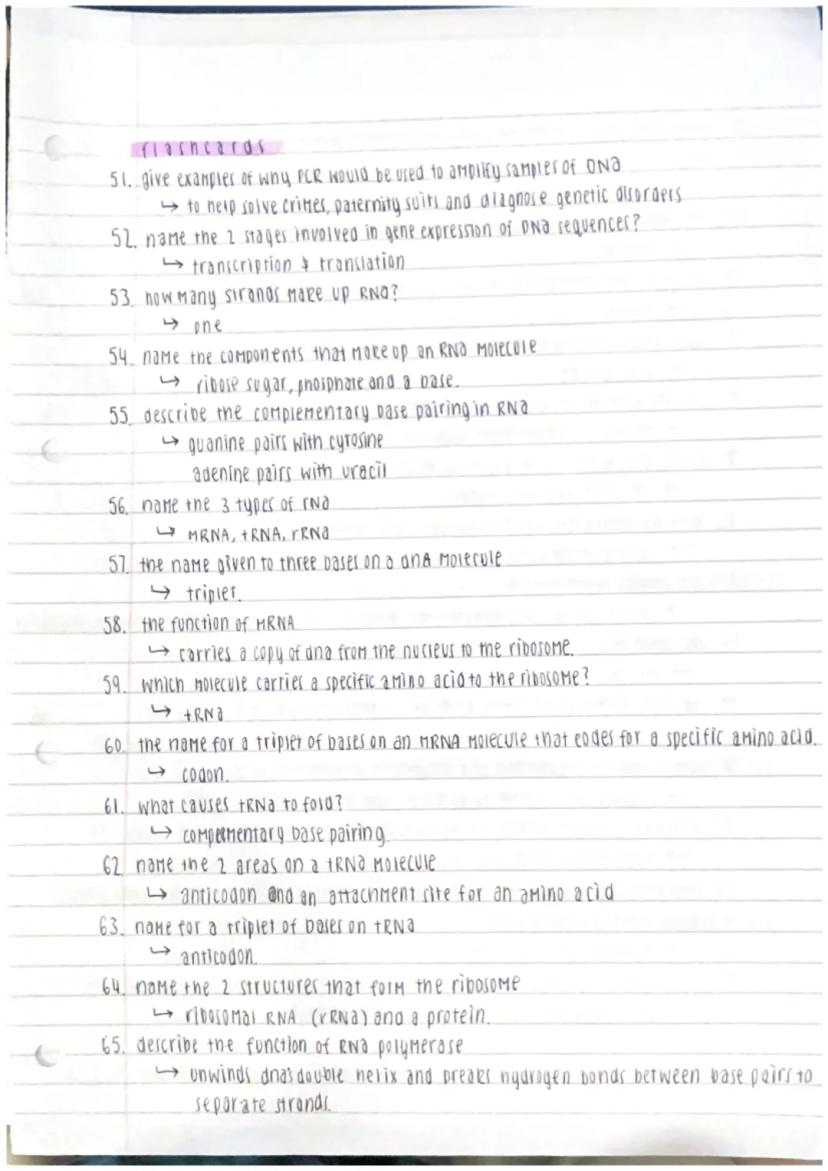 flashcards
51. give examples of why PCR would be used to amplify samples of DNa
↳ to help solve crimes, paternity suits and diagnose genetic disorders
52. name the 2 stages involved in gene expression of DNa sequences?
↳ transcription & translation
53. how many strands make up RNa?
↳ one
54. name the components that make up an RNa molecule
↳ ribose sugar, phosphate and a base.
55. describe the complementary base pairing in RNa
↳ guanine pairs with cytosine
adenine pairs with uracil
56. name the 3 types of rna
↳ mRNA, tRNA, rRNa
57. the name given to three bases on a dnA molecule
↳ triplet.
58. the function of mRNA
↳ carries a copy of dna from the nucleus to the ribosome.
59. which molecule carries a specific amino acid to the ribosome?
↳ tRNa
60. the name for a triplet of bases on an mRNA molecule that codes for a specific amino acid.
↳ codon.
61. what causes tRNa to fold?
↳ complementary base pairing.
62. name the 2 areas on a tRNa molecule
↳ anticodon and an attachment site for an amino acid
63. name for a triplet of bases on tRNa
↳ anticodon.
64. name the 2 structures that form the ribosome
↳ ribosomal RNA (rRNa) and a protein.
65. describe the function of RNa polymerase
↳ unwinds dna's double helix and breaks hydrogen bonds between base pairs to
separate strands.